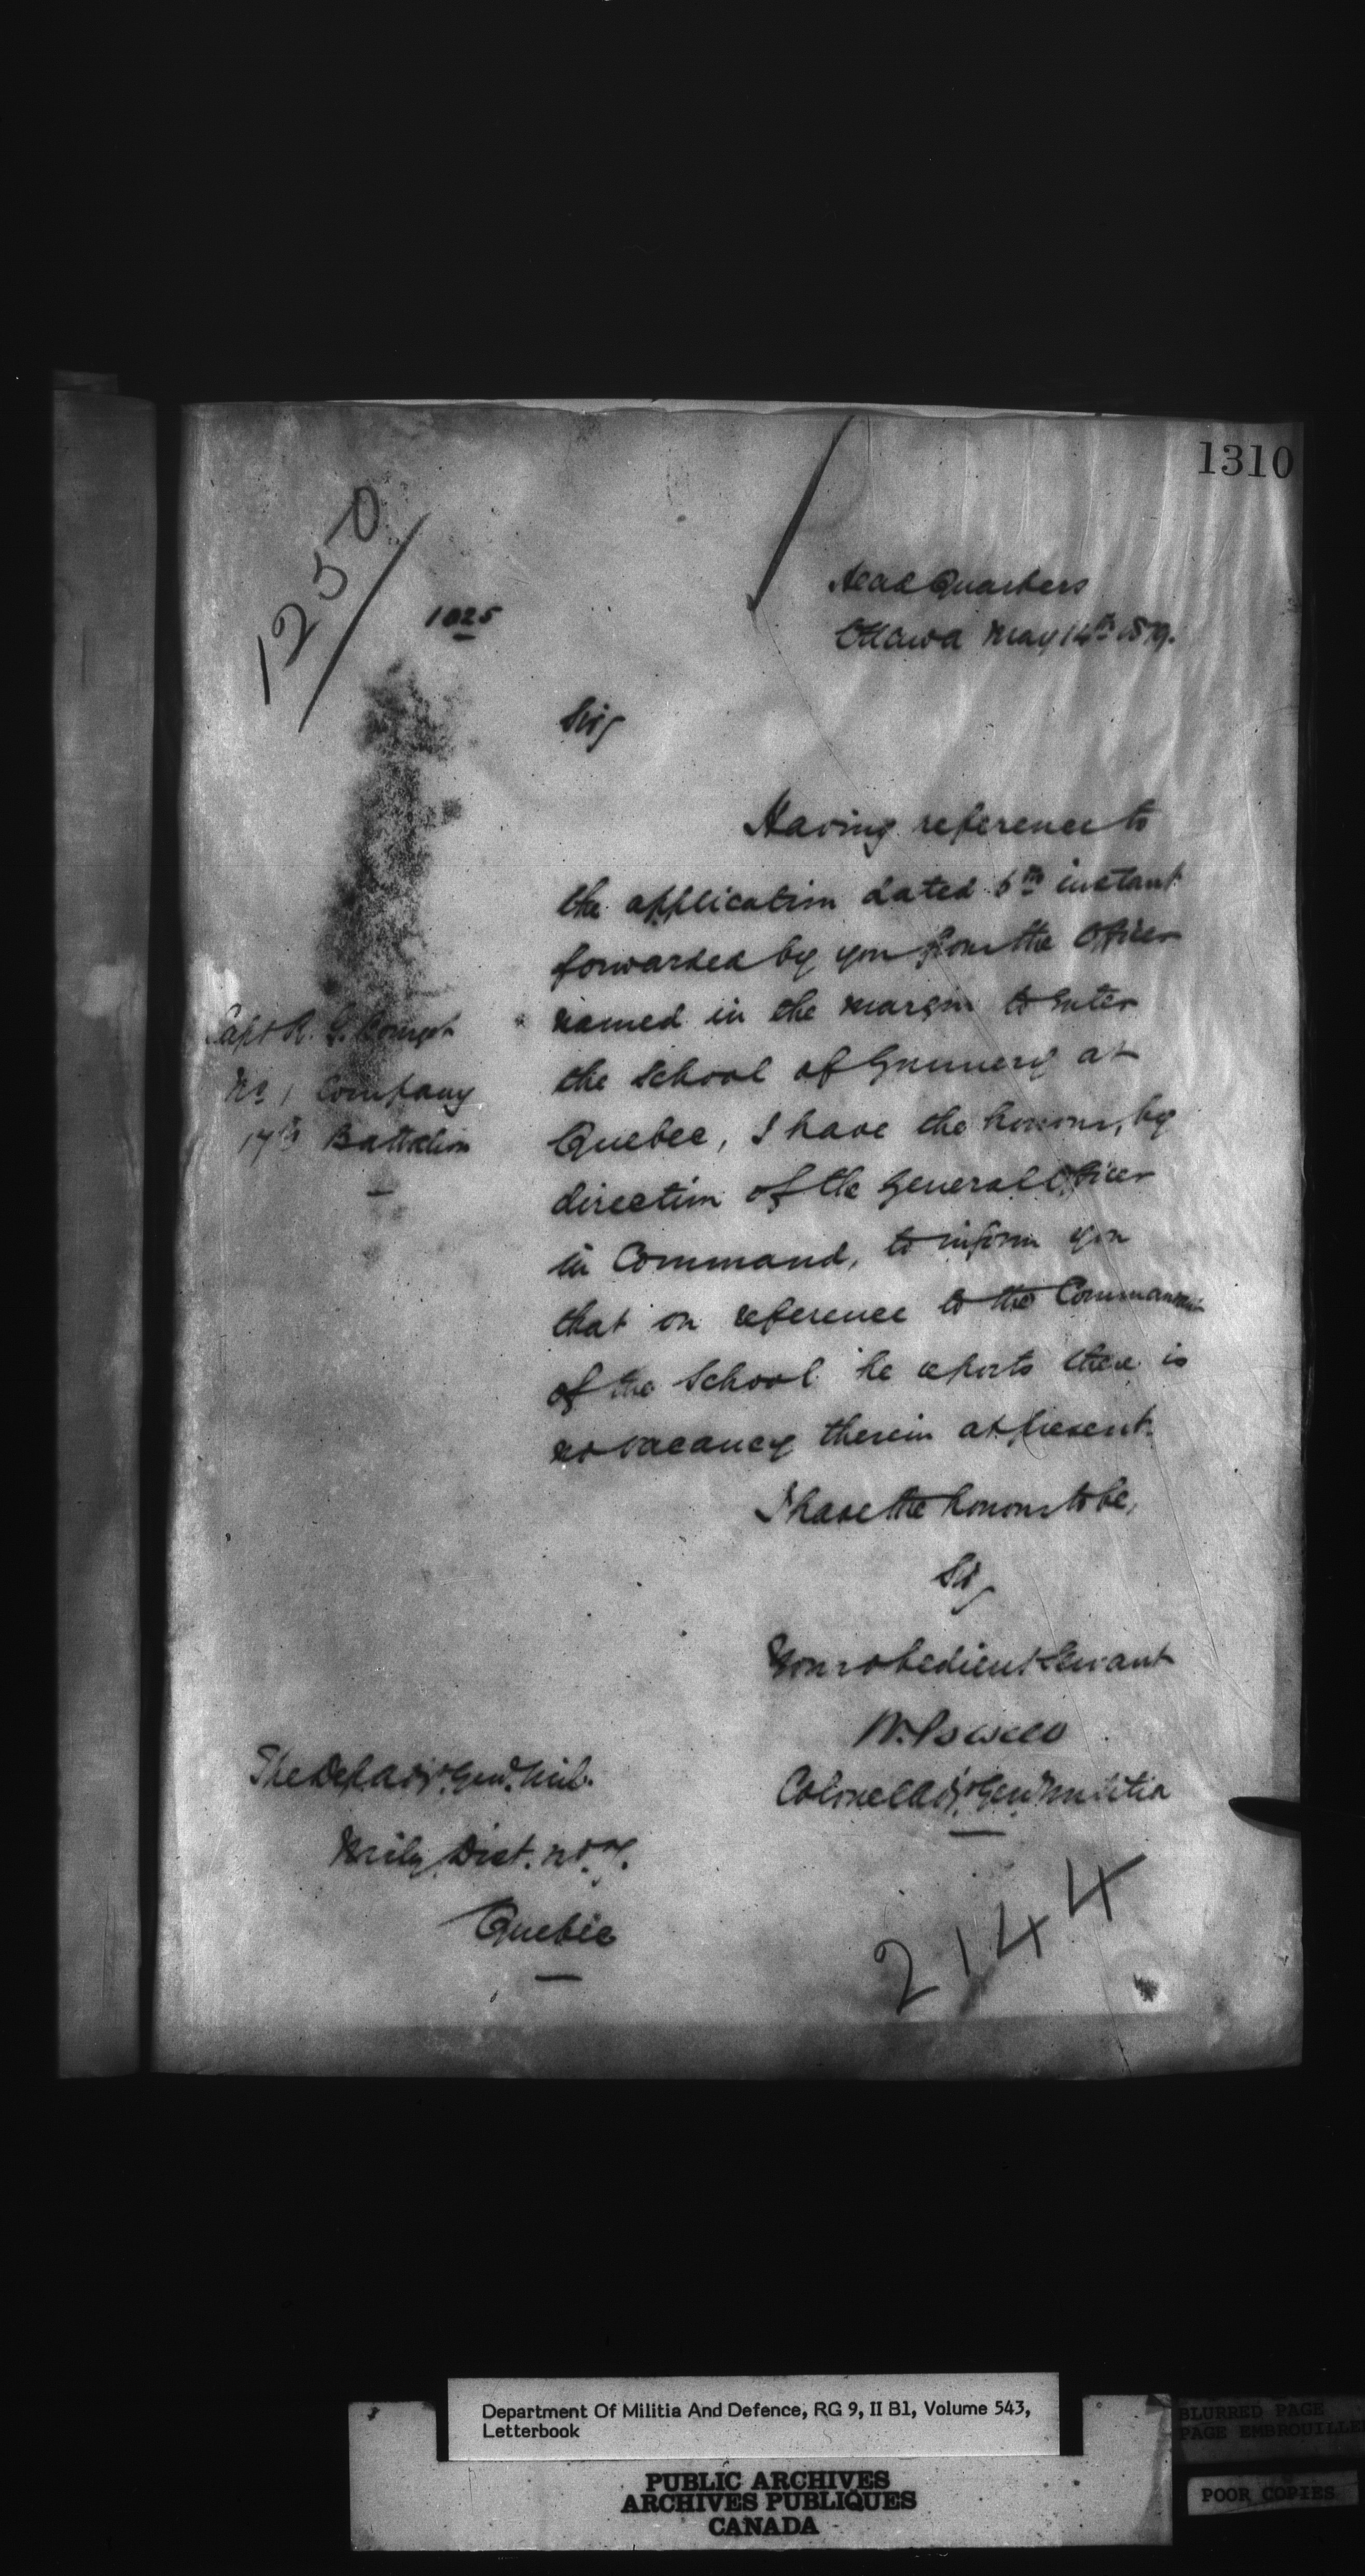 1310
1250
1025
Head Quarters
Ottawa May 14th 1879.
Sir,
Having reference to
the application dated 6th instant
forwarded by you from the Officer
Capt R. G.
named in the margin to enter
No 1 Company
the School of Gunnery at
17th Battalion
Quebec, I have the honour, by
direction of the General Officer
in Command, to inform you
that on reference to the Commandant
of the School he reports there is
no vacancy therein at present.
I have the honour to be,
Sir,
Your obedient Servant
W. Powell
Colonel Adjt. Genl. Militia
The Dep Adjt. Genl. Mil.
Mily Dist. No. 7.
Quebec
2144
Department Of Militia And Defence, RG 9, II B1, Volume 543,
Letterbook
PUBLIC ARCHIVES
ARCHIVES PUBLIQUES
CANADA
BLURRED PAGE
PAGE EMBROUILLE
POOR COPIES